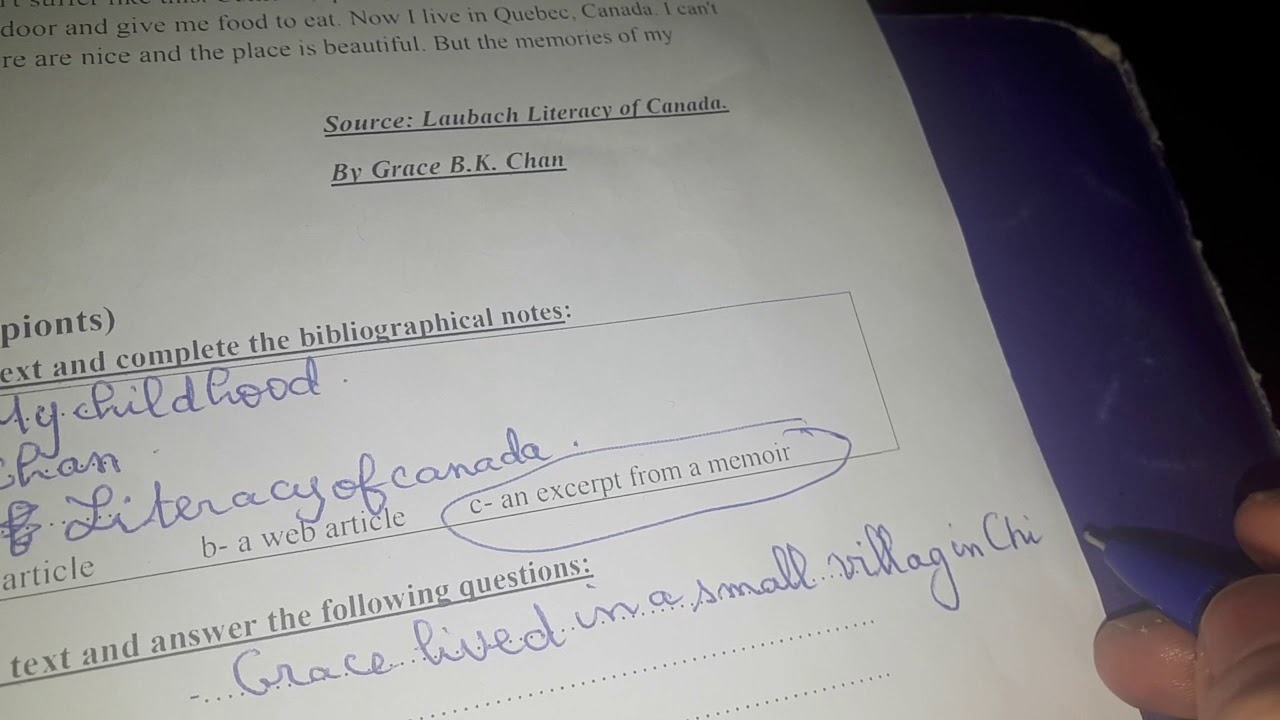 suffer like this.
door and give me food to eat. Now I live in Quebec, Canada. I can't
re are nice and the place is beautiful. But the memories of my
Source: Laubach Literacy of Canada.
By Grace B.K. Chan
pionts)
ext and complete the bibliographical notes:
My childhood.
Chan
Literacy of canada.
article b- a web article c- an excerpt from a memoir
text and answer the following questions:
-....Grace lived in a small villag in Chi